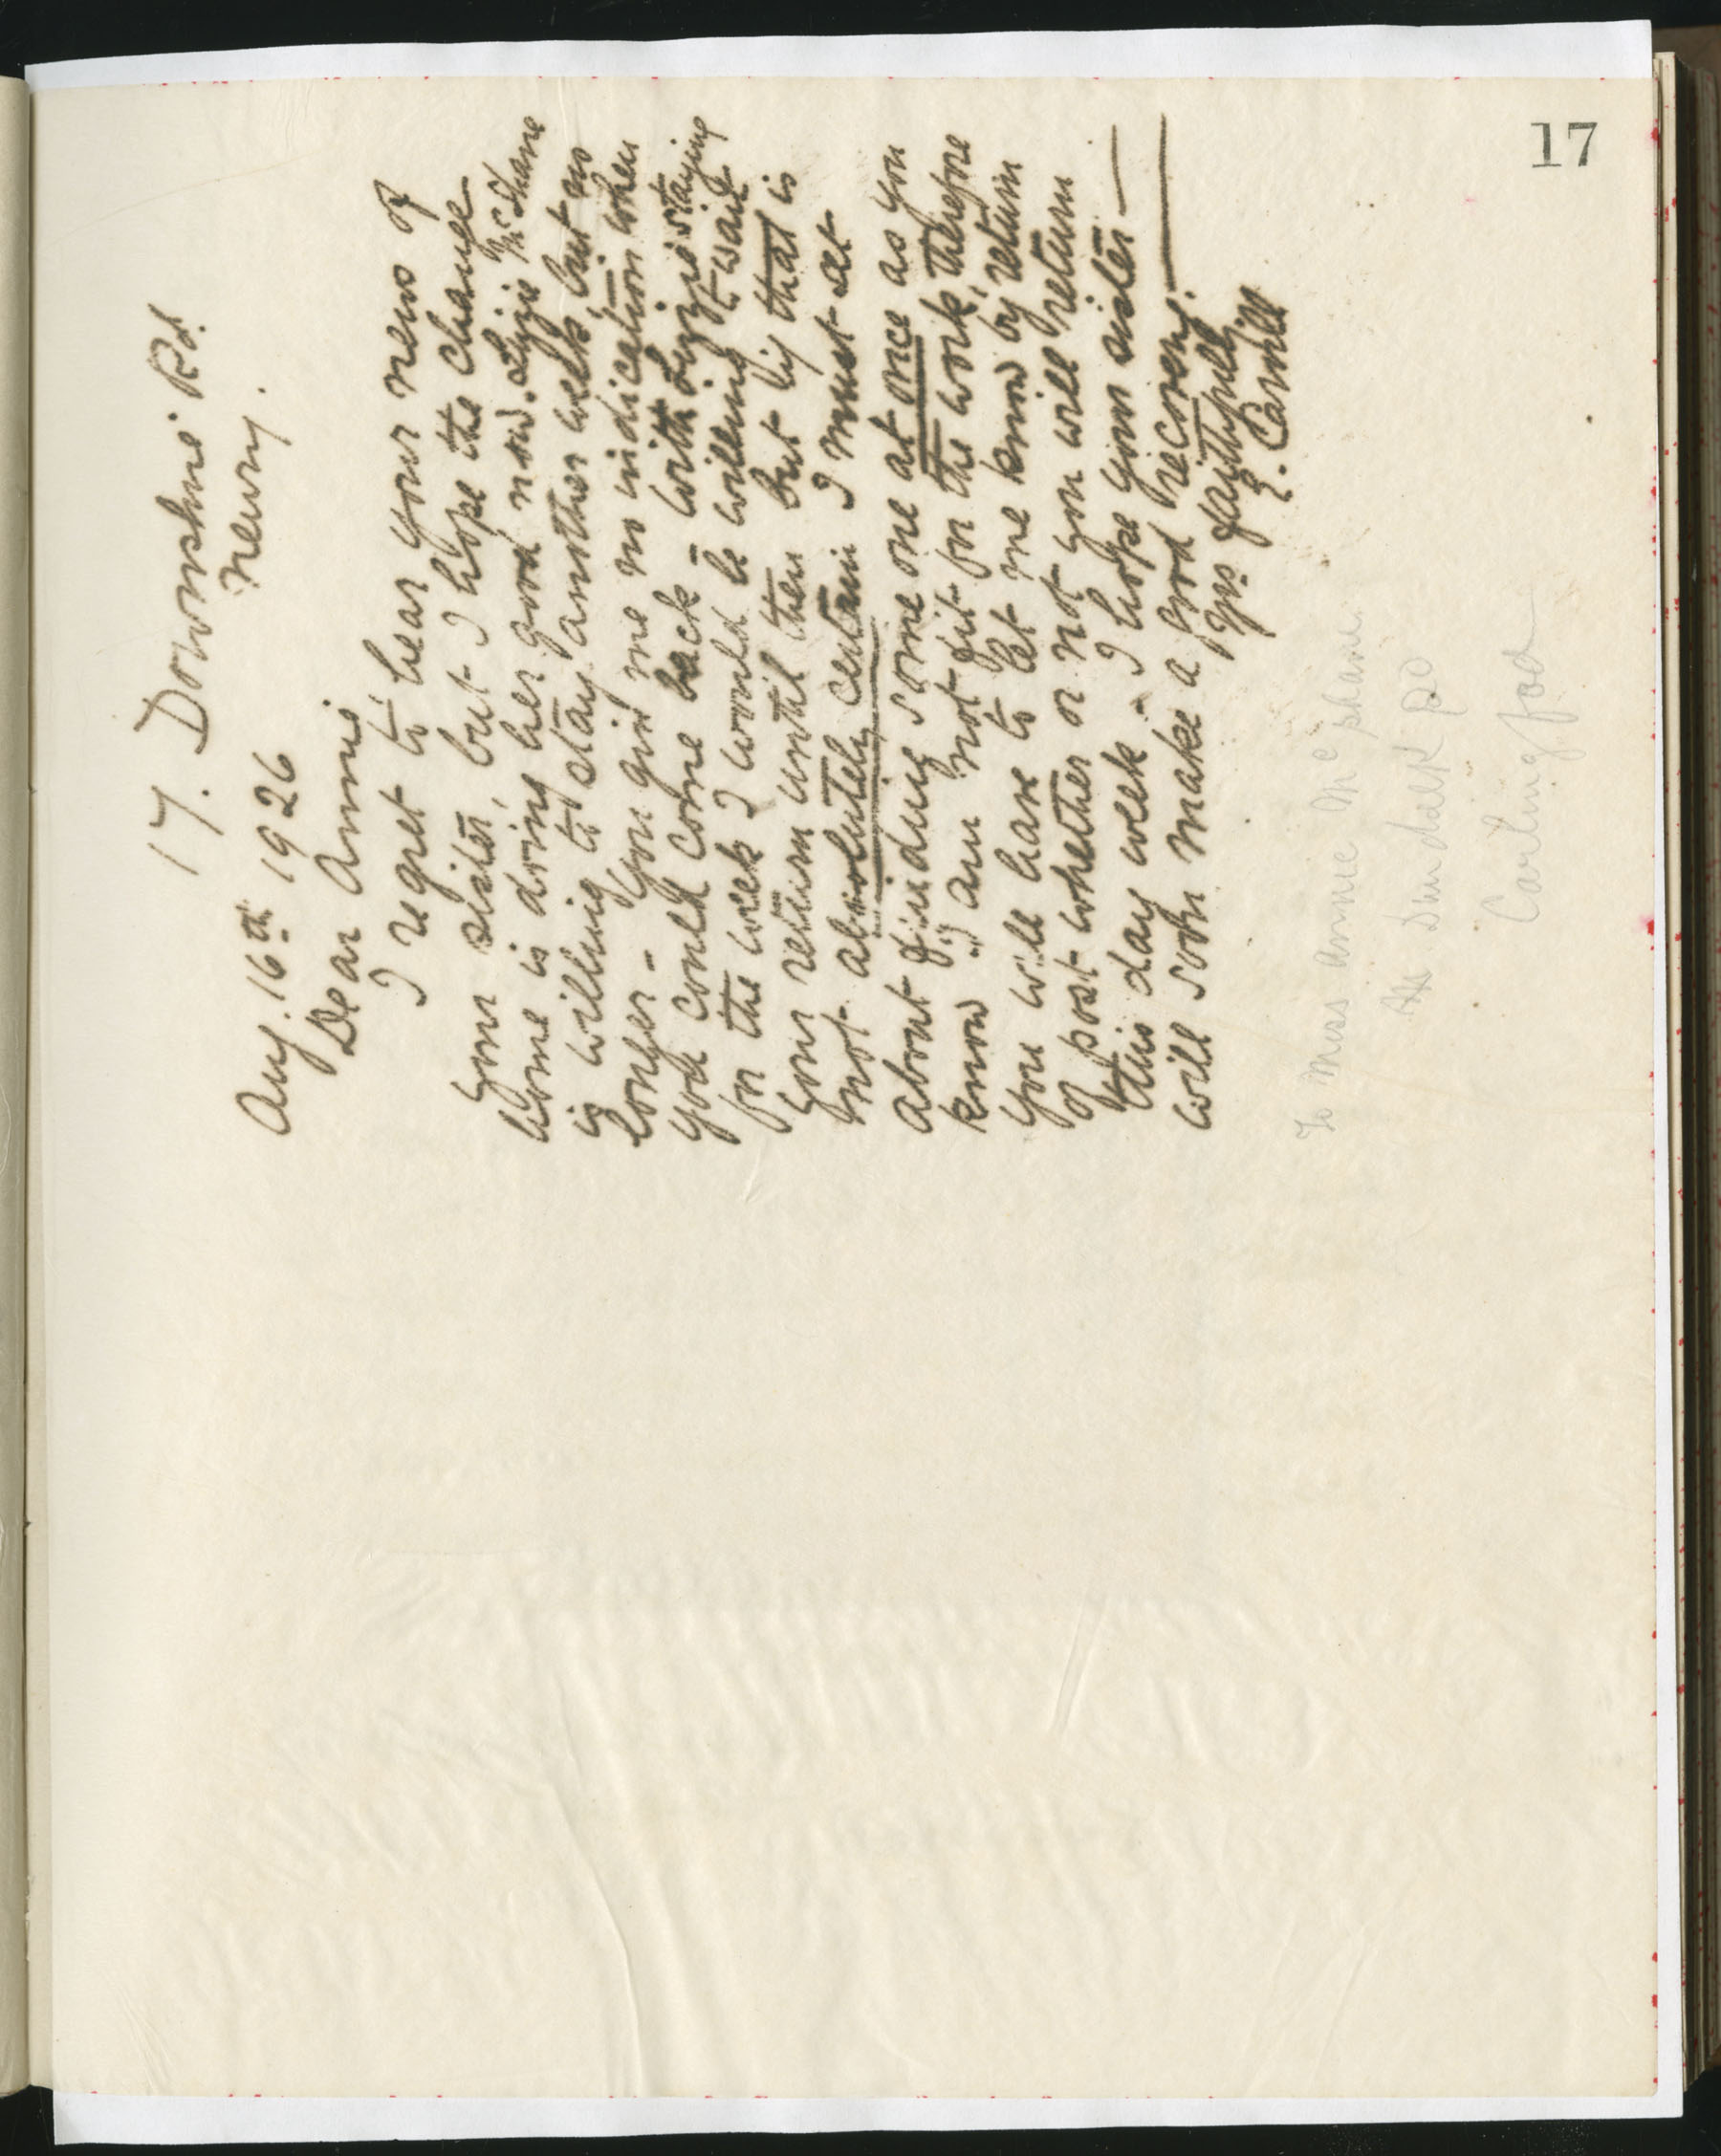 17
17. Downshire Rd.
Newry.
Aug. 16th 1926
Dear Annie,
I regret to hear your news of
your sister, but I hope the change
home is doing her good now. Lizzie McShane
is willing to stay another week, but no
longer - You give me no indication when
you could come back - With Lizzie staying
for the week I would be willing to wait
your return until then but if that is
not absolutely certain I must at
about finding some one at once as you
know I am not fit for the work, therefore
you will have to let me know by return
of post whether or not you will return
this day week - I hope your sister
will soon make a good recovery.
Yrs faithfully
E. Carvill
To Miss Annie McShane
Dundalk Rd
Carlingford